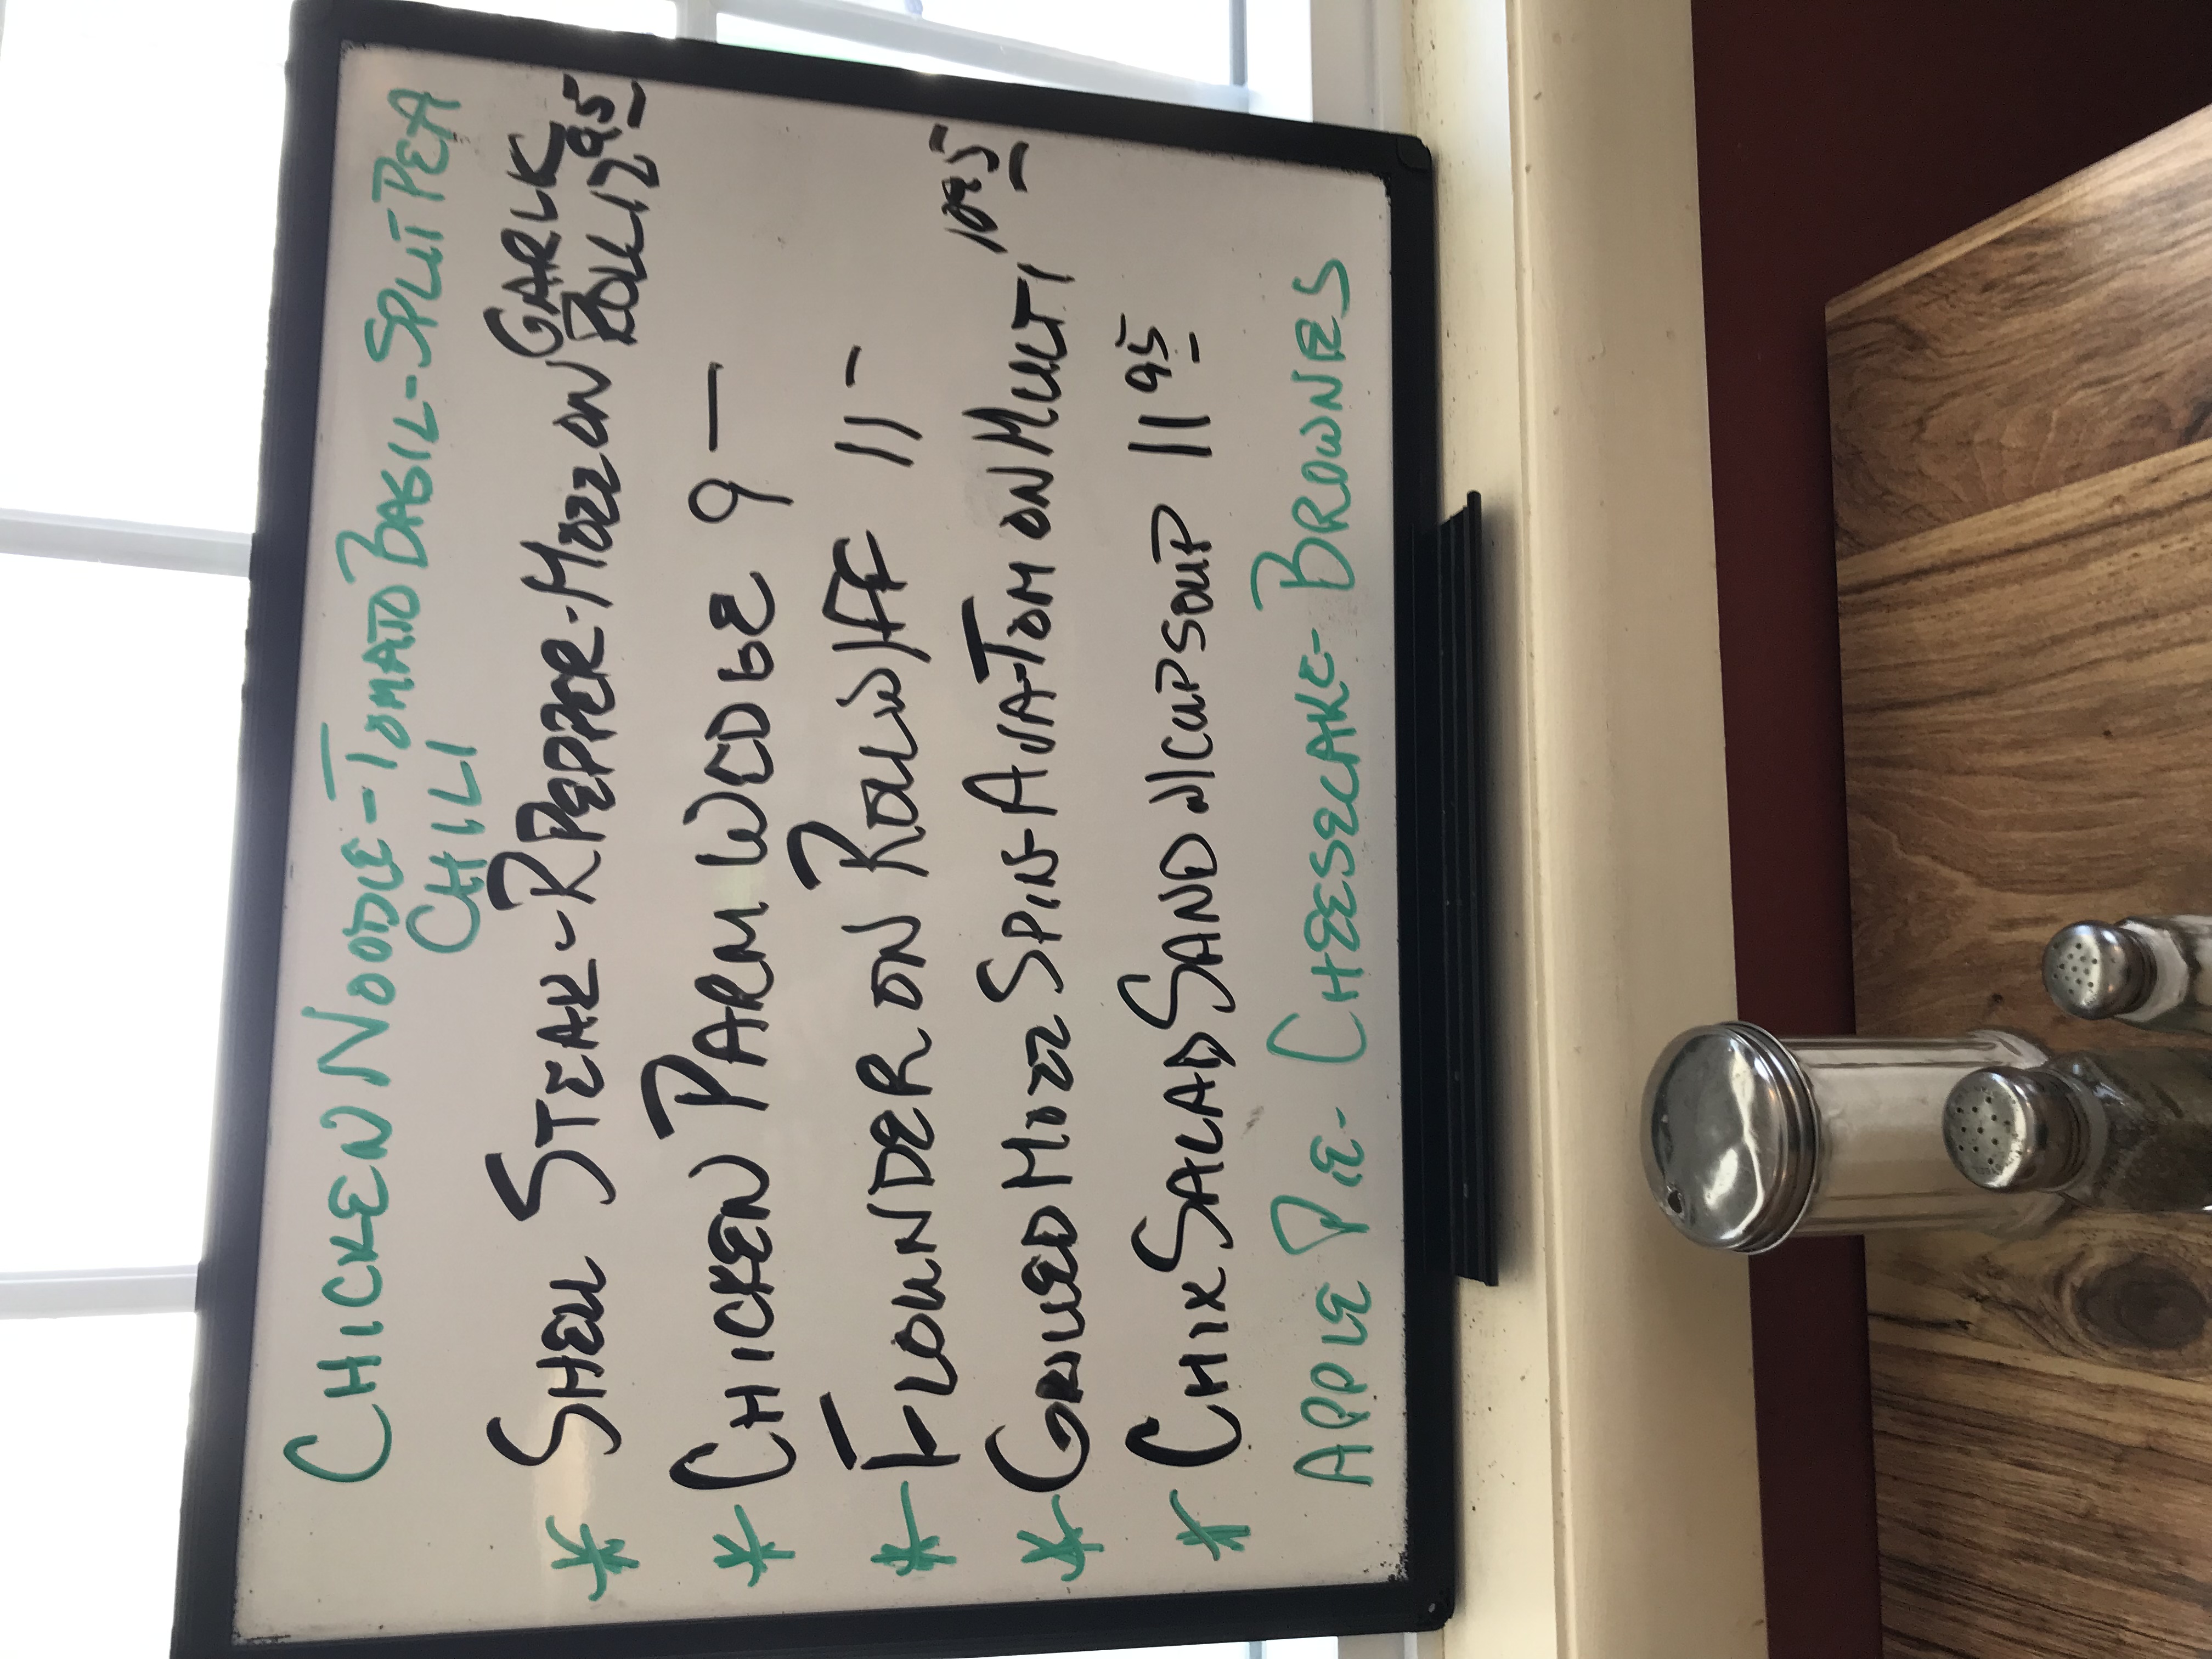 CHICKEN NOODLE - TOMATO BASIL - SPLIT PEA
CHILI
* SHELL STEAK - R PEPPER - MOZZ ON GARLIC
ROLL 12 95
* CHICKEN PARM WEDGE 9 —
* FLOUNDER ON ROLL W/FF 11 -
* GRILLED MOZZ SPIN - AVA - TOM ON MULTI 10 95
* CHIX SALAD SAND W/CUP SOUP 11 95
APPLE PIE - CHEESECAKE - BROWNIES